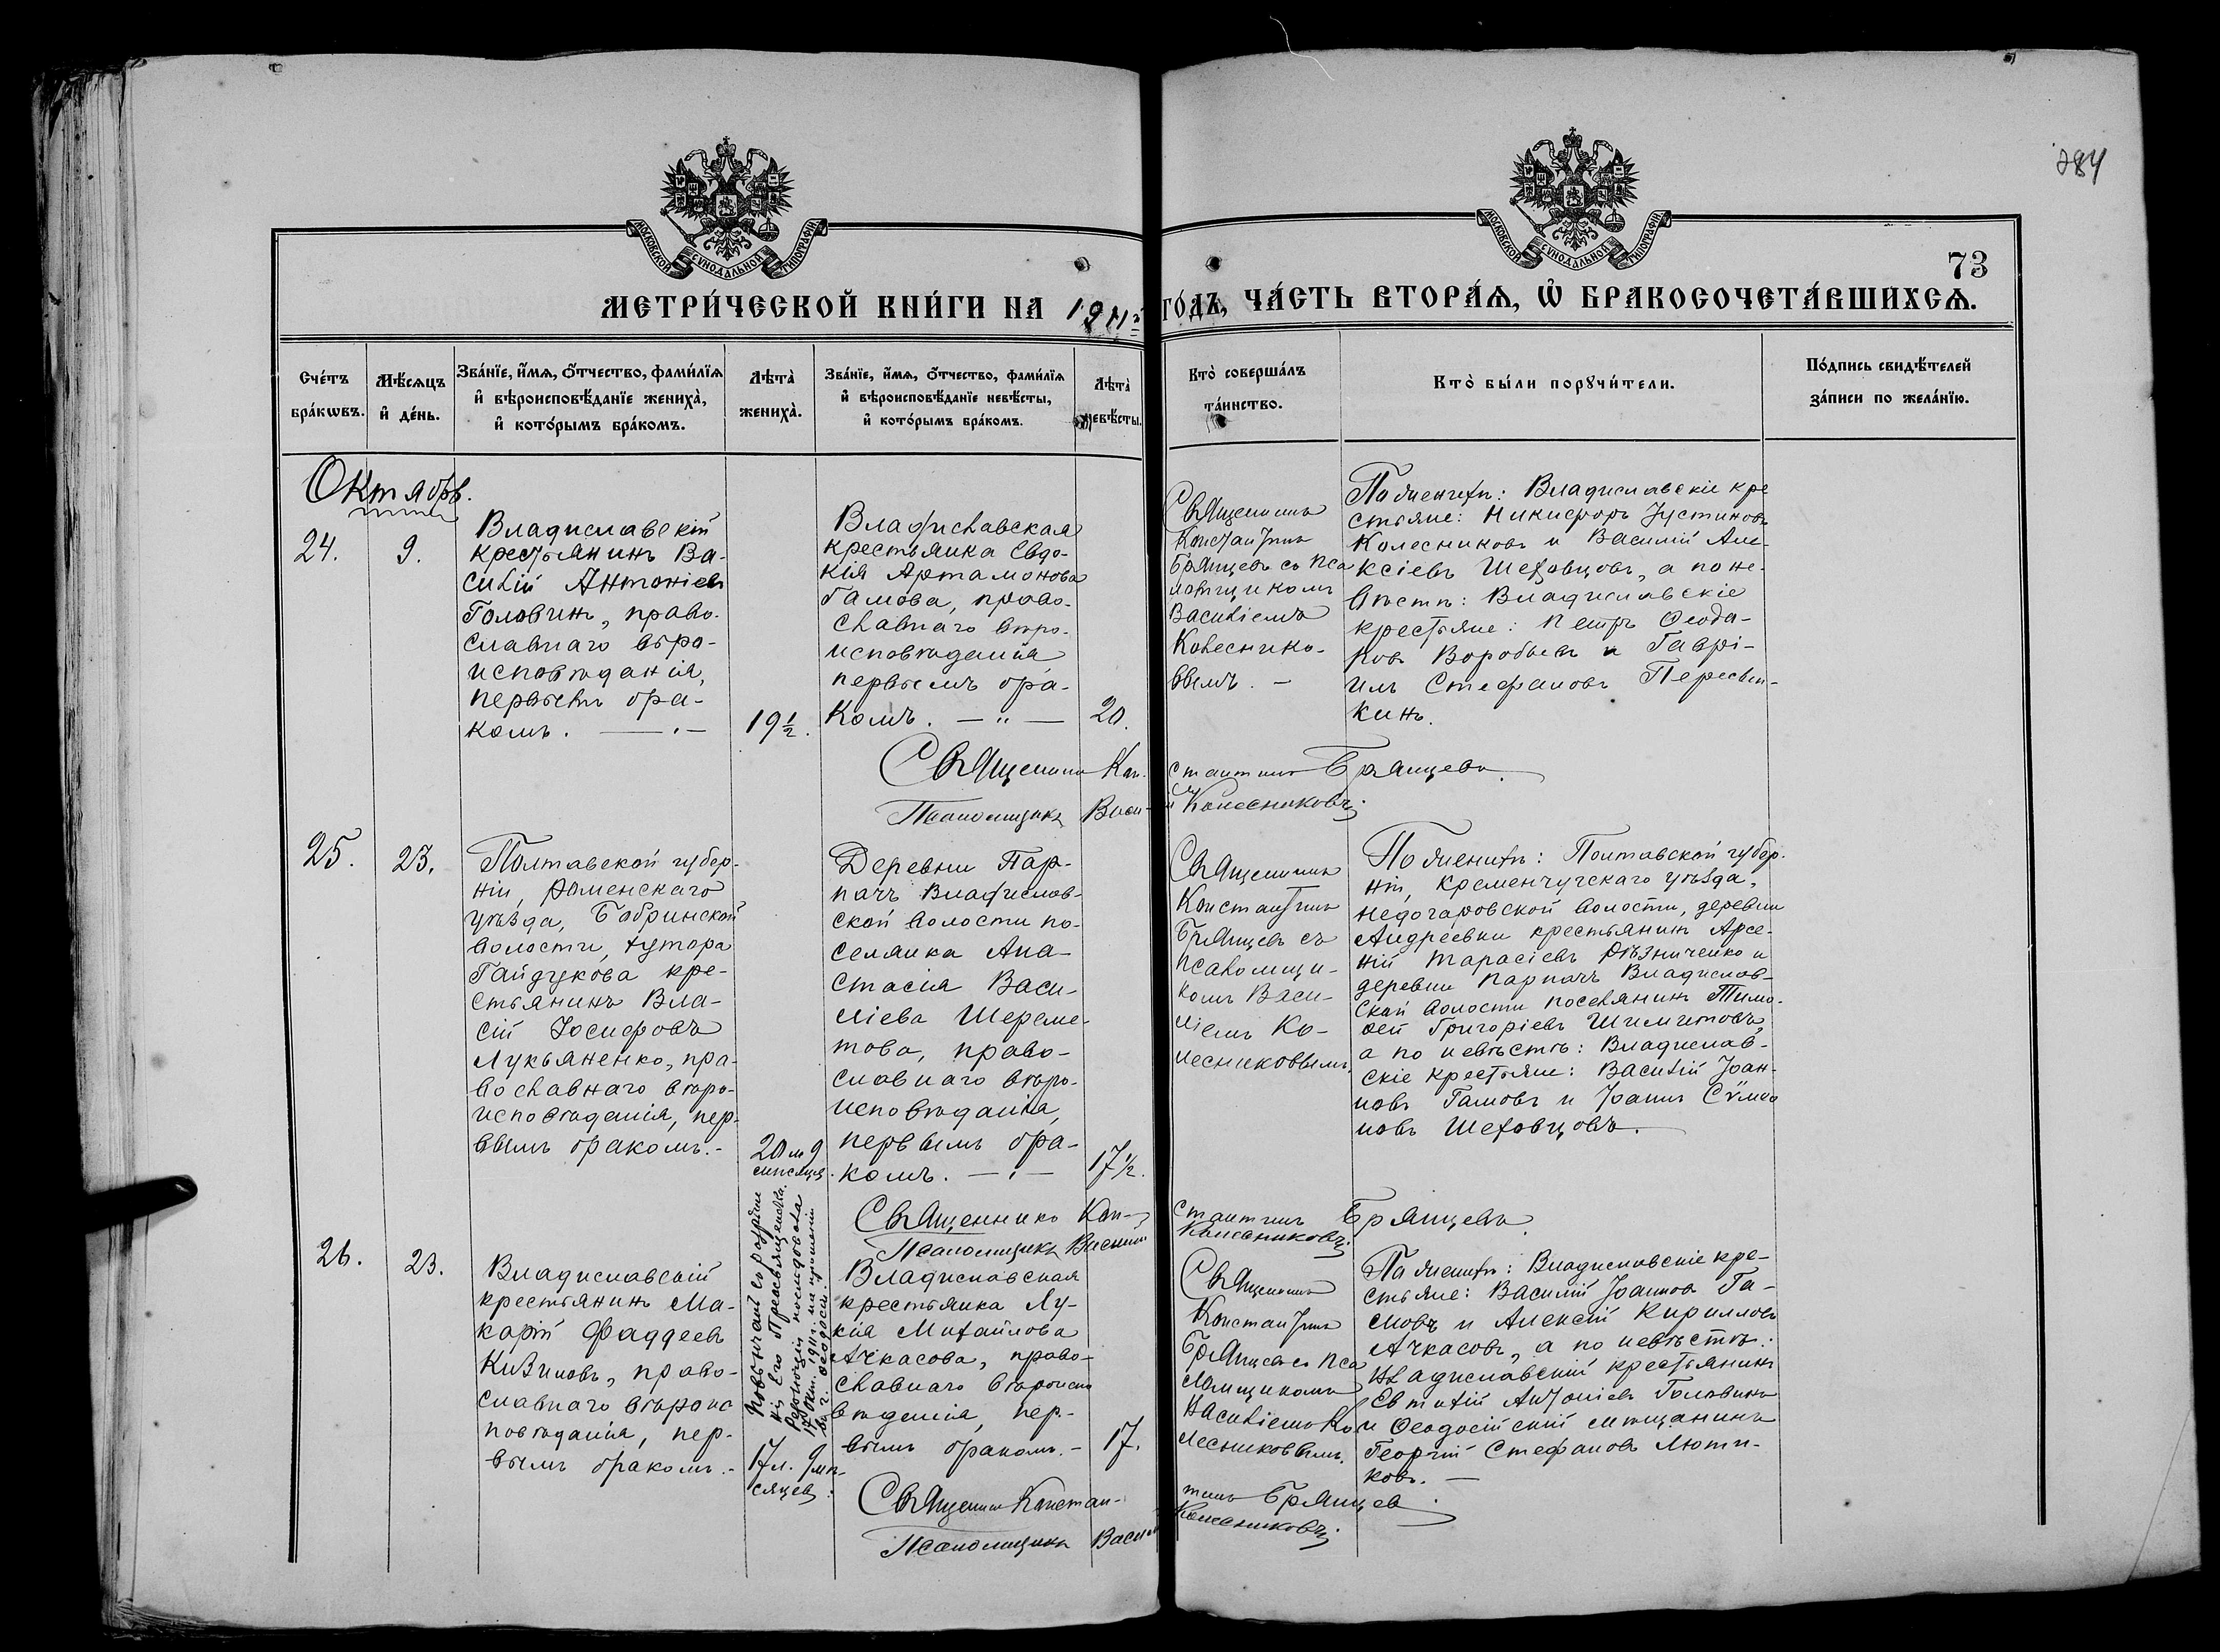 284
МОСКОВСКОЙ СУНОДАЛЬНОЙ ТИПОГРАФІИ
МОСКОВСКОЙ СУНОДАЛЬНОЙ ТИПОГРАФІИ
73
МЕТРИ́ЧЕСКОЙ КНИ́ГИ НА 1911й ГО́ДЪ, ЧА́СТЬ ВТОРА́Ѧ, Ѽ БРАКОСОЧЕТА́ВШИХСѦ.
Сче́тъ
бра́кѡвъ.
Мѣ́сѧцъ
и҆ де́нь.
Зва́нїе, и҆́мѧ, ѻ҆́тчество, фами́лїѧ
и҆ вѣроисповѣ́данїе жениха̀,
и҆ кото́рымъ бра́комъ.
Лѣта̀
жениха̀.
Зва́нїе, и҆́мѧ, ѻ҆́тчество, фами́лїѧ
и҆ вѣроисповѣ́данїе невѣ́сты,
и҆ кото́рымъ бра́комъ.
Лѣта̀
невѣ́сты.
Кто̀ соверша́лъ
та́инство.
Кто̀ бы́ли порꙋчи́тели.
По́дпись свидѣ́телей
за́писи по жела́нїю.
Октябрь.
24.
9.
Владиславскій
крестьянинъ Ва-
силій Антоніевъ
Головинъ, право-
славнаго вѣро-
исповѣданія,
первымъ бра-
комъ.
19½.
Владиславская
крестьянка Евдо-
кія Артамонова
Гамова, право-
славнаго вѣро-
исповѣданія
первымъ бра-
комъ. — " —
20.
Священникъ
Константинъ
Брянцевъ съ пса
ломщикомъ
Василіемъ
Колеснико-
вымъ. —
По женихѣ: Владиславскіе кре
стьяне: Никифоръ Іустиновъ
Колесниковъ и Василій Але-
ксіевъ Шеховцовъ, а по не-
вѣстѣ: Владиславскіе
крестьяне: Петръ Ѳеодо-
ровъ Воробьевъ и Гаврі-
илъ Стефановъ Пересып-
кинъ.
Священникъ Константинъ Брянцевъ.
Псаломщикъ Василій Колесниковъ.
25.
23.
Полтавской губер-
ніи, Роменскаго
уѣзда, Бобринской
волости, хутора
Гайдукова кре-
стьянинъ Вла-
сій Іосифовъ
Лукьяненко, пра-
вославнаго вѣро-
исповѣданія, пер-
вымъ бракомъ.-
20 л 9
мѣсяцев.
Деревни Пар-
пачъ Владислав-
ской волости по-
селянка Ана-
стасія Васи-
ліева Шереме-
това, право-
славнаго вѣро-
исповѣданія,
первымъ бра-
комъ. —
17½.
Священникъ
Константинъ
Брянцевъ съ
псаломщи-
комъ Васи-
ліемъ Ко-
лесниковымъ.
По женихѣ: Полтавской губер-
ніи, Кременчугскаго уѣзда,
Недогаровской волости, деревни
Андреевки крестьянинъ Арсе-
ній Тарасіевъ Рѣзниченко и
деревни Парпачъ Владислав-
ской волости поселянинъ Тимо-
ѳей Григоріевъ Шилитовъ,
а по невѣстѣ: Владислав-
скіе крестьяне: Василій Іоан-
новъ Гамовъ и Іоаннъ Сѵмео
новъ Шеховцовъ.
Священникъ Константинъ Брянцевъ.
Псаломщикъ Василій Колесниковъ.
26.
23.
Владиславскій
крестьянинъ Ма-
карій Фаддеевъ
Кизиловъ, право-
славнаго вѣроис
повѣданія, пер-
вымъ бракомъ.-
Повѣнчанъ съ разрѣше
нія Его Преосвященства.
Резолюція послѣдовала
17 Окт. 1911 г. на прошеніи
17 л. 9 мѣ-
сяцев.
Владиславская
крестьянка Лу-
кія Михайлова
Ачкасова, право-
славнаго вѣроиспо
вѣданія, пер-
вымъ бракомъ.-
17.
Священникъ
Константинъ
Брянцевъ съ пса
ломщикомъ
Василіемъ Ко
лесниковымъ.
По женихѣ: Владиславскіе кре-
стьяне: Василій Іоанновъ Га-
мовъ и Алексій Кирилловъ
Ачкасовъ, а по невѣстѣ:
Владиславскій крестьянинъ
Евтихій Антоніевъ Головинъ
и Ѳеодосійскій мѣщанинъ
Георгій Стефановъ Люти-
ковъ. —
Священникъ Константинъ Брянцев
Псаломщикъ Василій Колесниковъ.